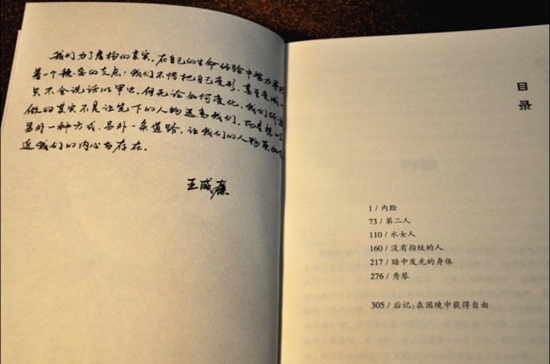 我们为了虚构的真实，在自己的生命体验中努力寻找
着一个稳妥的支点：我们不惜把自己变形，甚至变成一
只不会说话的甲虫。但无论如何变化，我们所
做的其实不是让笔下的人物远离我们，而是想以
另外一种方式、另外一条道路，让我们的人物更加
近我们的内心与存在。
王威廉
目
录
1 / 内脸
73 / 第二人
110 / 水女人
160 / 没有指纹的人
217 / 暗中发光的身体
276 / 秀琴
305 / 后记：在困境中获得自由